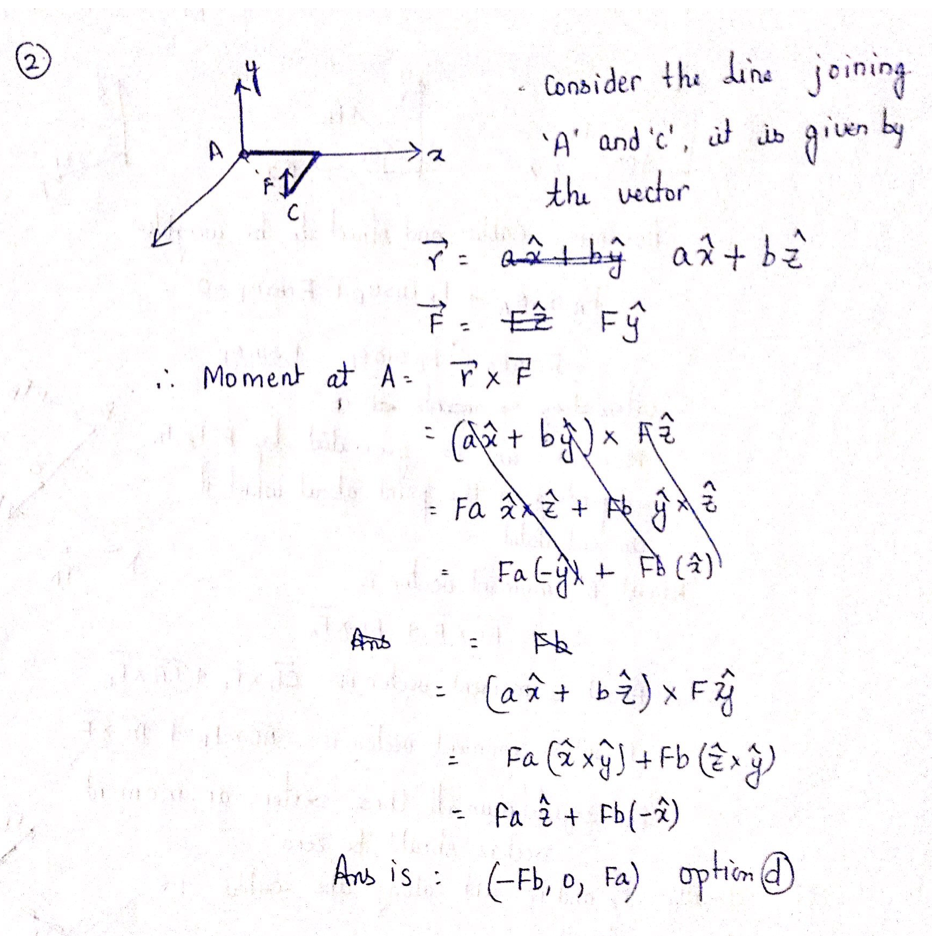 ②
y
- Consider the line joining
A
x
'A' and 'c', it is given by
F
C
the vector
r⃗ = a x̂ + b ŷ a x̂ + b ẑ
F⃗ = F ẑ F ŷ
∴ Moment at A = r⃗ × F⃗
= (a x̂ + b ŷ) × F ẑ
= Fa x̂ × ẑ + Fb ŷ × ẑ
= Fa (-ŷ) + Fb (x̂)
Ans = Fb
= (a x̂ + b ẑ) × F ŷ
= Fa (x̂ × ŷ) + Fb (ẑ × ŷ)
= Fa ẑ + Fb (-x̂)
Ans is : (-Fb, 0, Fa) option ⓓ